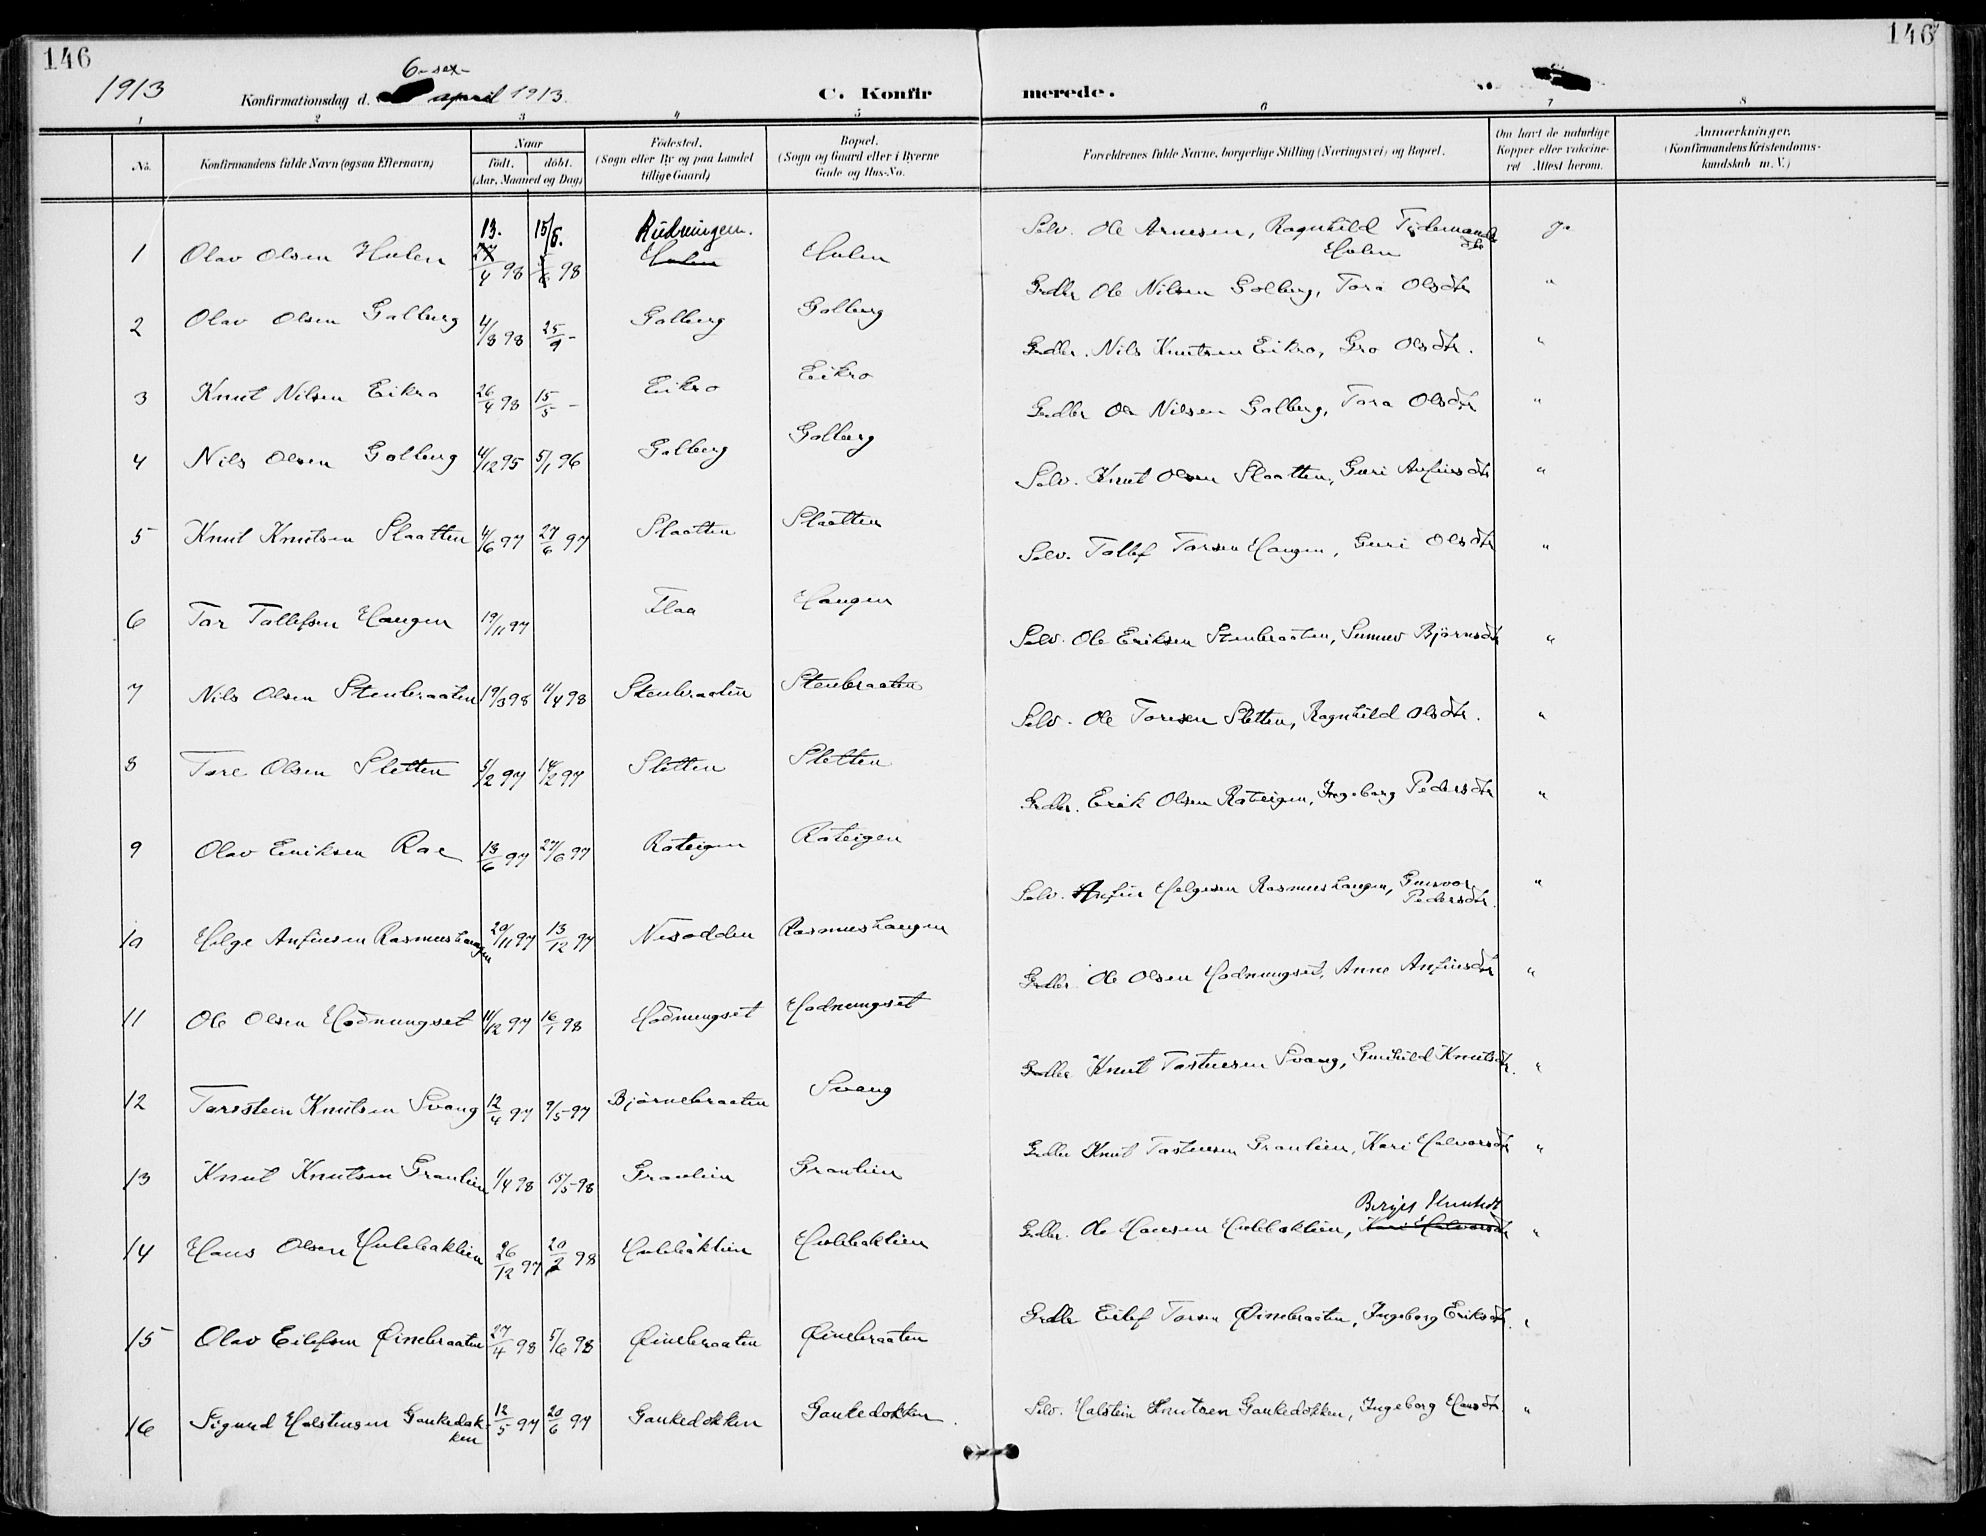 146
146
1913
6-sex-
Konfirmationsdag d. april 1913.
C. Konfirmerede.
1 2 3 4 5 6 7 8
No.
Konfirmandens fulde Navn (ogsaa Efternavn)
Naar
født. døbt.
(Aar, Maaned og Dag)
Fødested.
(Sogn eller By og paa Landet
tillige Gaard)
Bopæl.
(Sogn og Gaard eller i Byerne
Gade og Hus-No.
Forældrenes fulde Navne, borgerlige Stilling (Næringsvei) og Bopæl.
Om havt de naturlige
Kopper eller vakcine-
ret Attest herom.
Anmærkninger.
(Konfirmandens Kristendoms-
kundskab m. V.)
13. 15/5. Rudningen.
1 Olav Olsen Hulen 4 98 98 Hulen Hulen Selv. Ole Arnesen, Ragnhild Tidemands Hulen ja
2 Olav Olsen Golberg 4/3 98 25/9 - Golberg Golberg Grdbr Ole Nilsen Golberg, Tora Olsdtr "
3 Knut Nilsen Eikro 26/4 98 15/5 - Eikro Eikro Grdbr. Nils Knutsen Eikro, Gro Olsdtr. "
4 Nils Olsen Golberg 4/12 95 5/1 96 Golberg Golberg Grdbr Ole Nilsen Golberg, Tora Olsdtr "
5 Knut Knutsen Slaatten 4/6 97 27/6 97 Slaatten Slaatten Selv. Knut Olsen Slaatten, Guri Anfinsdtr "
6 Tor Tollefsen Haugen 19/11 97 Flaa Haugen Selv. Tollef Torsen Haugen, Guri Olsdtr "
7 Nils Olsen Stenbraaten 19/3 98 11/4 98 Stenbraaten Stenbraaten Selv. Ole Eriksen Stenbraaten, Sunnev Bjørnsdtr "
8 Tore Olsen Sletten 5/2 97 14/2 97 Sletten Sletten Selv. Ole Toresen Sletten, Ragnhild Olsdtr. "
9 Olav Eriksen Roe 13/6 97 27/6 97 Roteigen Roteigen Grdbr. Erik Olsen Roteigen, Ingeborg Pedersdtr "
10 Helge Anfinsen Rasmushaugen 20/11 97 13/12 97 Nesodden Rasmushaugen Selv. Anfin Helgesen Rasmushaugen, Gunvor
Pedersdtr. "
11 Ole Olsen Hodnungset 11/12 97 16/1 98 Hodnungset Hodnungset Grdbr. Ole Olsen Hodnungset, Anne Anfinsdtr "
12 Torstein Knutsen Svang 12/4 97 9/5-97 Bjørnebraaten Svang Grdbr Knut Tostensen Svang, Gunhild Knutsdtr. "
13 Knut Knutsen Granlien 1/4 98 15/5-98 Granlien Granlien Grdbr Knut Tostensen Granlien, Kari Halvorsdtr "
Birgit Knutsdt
14 Hans Olsen Hulebaklien 26/12 97 20/2 98 Hulebaklien Hulebaklien Grdbr. Ole Hansen Hulebaklien, Kari Halvorsdtr "
15 Olav Eilefsen Øinebraaten 27/4 98 5/6 98 Øinebraaten Øinebraaten Grdbr Eilef Torsen Øinebraaten, Ingeborg Eriksdtr. "
16 Sigurd Holstensen Gaukedok-
ken 12/5 97 20/6 97 Gaukedokken Gaukedokken. Selv. Holstein Knutsen Gaukedokken, Ingeborg Hansdtr. "